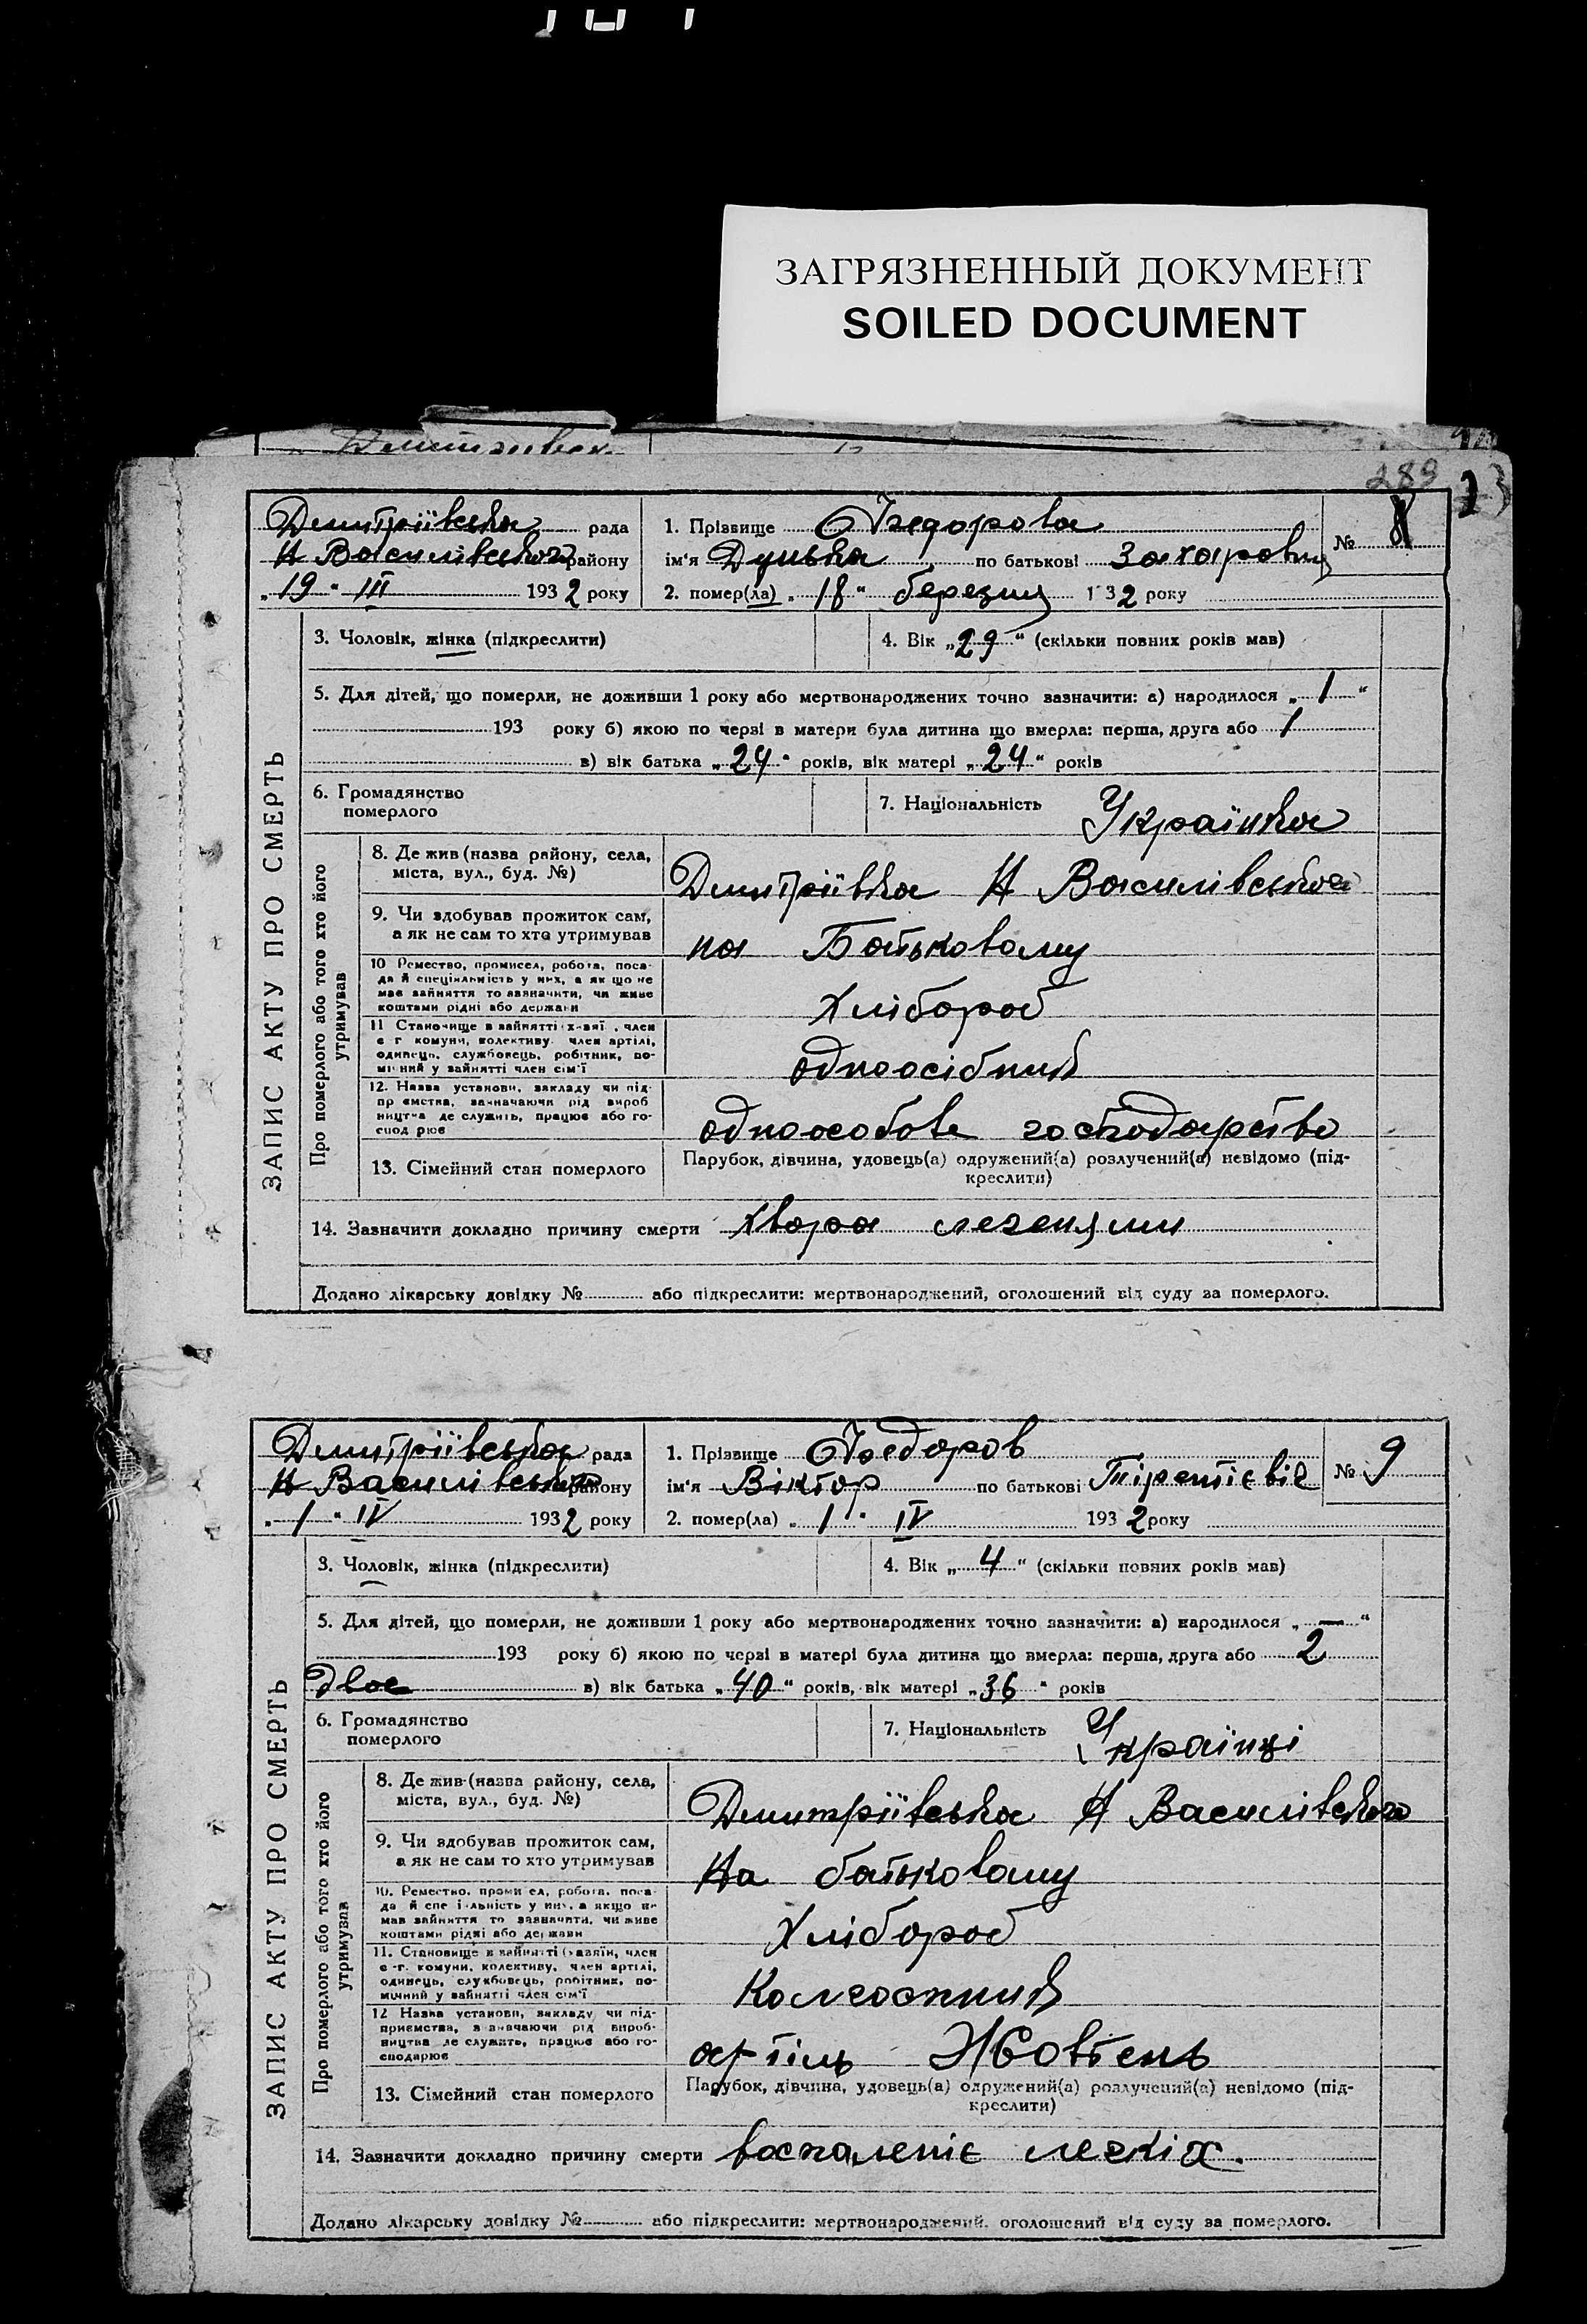 ЗАГРЯЗНЕННЫЙ ДОКУМЕНТ
SOILED DOCUMENT
289
Дмитріівська рада
Н Василівського району
„19“ III 1932 року
1. Прізвище Федорова
ім'я Дунька по батькові Захаровна
№ 8
2. помер(ла) „18“ березня 1932 року
3. Чоловік, жінка (підкреслити)
4. Вік „29“ (скільки повних років мав)
5. Для дітей, що померли, не доживши 1 року або мертвонароджених точно зазначити: а) народилося „1“
193 року б) якою по черзі в матери була дитина що вмерла: перша, друга або 1
в) вік батька „24“ років, вік матері „24“ років
6. Громадянство
померлого
7. Національність Українка
ЗАПИС АКТУ ПРО СМЕРТЬ
Про померлого або того хто його
утримував
8. Де жив (назва району, села,
міста, вул., буд. №)
Дмитріівка Н Василівського
9. Чи здобував прожиток сам,
а як не сам то хто утримував
на Батьковому
10 Ремество, промисел, робота, поса-
да й спеціяльність у них, а як що не
мав зайняття то зазначити, чи живе
коштами рідні або держави
Хлібороб
11 Становище в зайнятті х-зяї, член
с г комуни, колективу член артілі,
одинець, службовець, робітник, по-
мічний у зайнятті член сім'ї
одноосібник
12. Назва установи, закладу чи під-
приємства, зазначаючи рід вироб
ництва де служить, працює або го-
спод рює
одноособове господарство
13. Сімейний стан померлого
Парубок, дівчина, удовець(а) одружений(а) розлучений(а) невідомо (під-
креслити)
14. Зазначити докладно причину смерти хвора легенями
Додано лікарську довідку № або підкреслити: мертвонароджений, оголошений від суду за померлого.
Дмитріівська рада
Н Василівського району
„1“ IV 1932 року
1. Прізвище Федоров
ім'я Віктор по батькові Тірентієвіч
№ 9
2. помер(ла) „1“ IV 1932 року
3. Чоловік, жінка (підкреслити)
4. Вік „4“ (скільки повних років мав)
5. Для дітей, що померли, не доживши 1 року або мертвонароджених точно зазначити: а) народилося „—“
193 року б) якою по черзі в матері була дитина що вмерла: перша, друга або 2
двое в) вік батька „40“ років, вік матері „36“ років
6. Громадянство
померлого
7. Національність Українці
ЗАПИС АКТУ ПРО СМЕРТЬ
Про померлого або того хто його
утримував
8. Де жив (назва району, села,
міста, вул., буд. №)
Дмитріівська Н Василівського
9. Чи здобував прожиток сам,
а як не сам то хто утримував
На батьковому
10. Ремество, промисел, робота, поса-
да й спеціяльність у них, а якщо не
мав зайняття то зазначити, чи живе
коштами рідні або держави
Хлібороб
11. Становище в зайнятті (хазяїн, член
с-г. комуни, колективу, член артілі,
одинець, службовець, робітник, по-
мічний у зайнятті член сім'ї
Колгоспник
12 Назва установи, закладу чи під-
приємства, зазначаючи рід вироб-
ництва де служить, працює або го-
сподарює
артіль Жовтень
13. Сімейний стан померлого
Парубок, дівчина, удовець(а) одружений(а) розлучений(а) невідомо (під-
креслити)
14. Зазначити докладно причину смерти воспаленіє легкіх.
Додано лікарську довідку № або підкреслити: мертвонароджений, оголошений від суду за померлого.